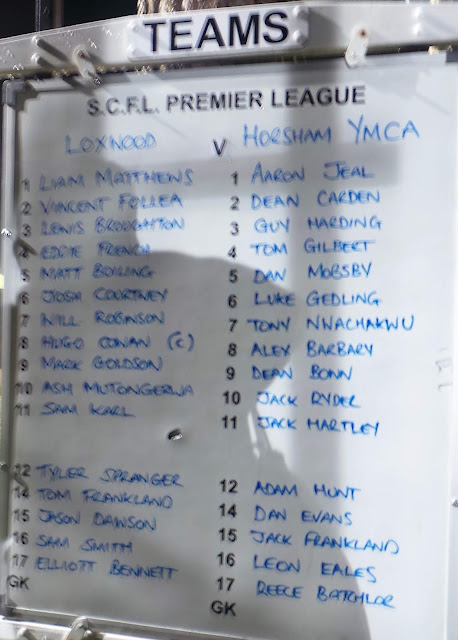 TEAMS
S.C.F.L. PREMIER LEAGUE
LOXWOOD V HORSHAM YMCA
1 LIAM MATTHEWS 1 AARON JEAL
2 VINCENT FOLLEA 2 DEAN CARDEN
3 LEWIS BROUGHTON 3 GUY HARDING
4 EDDIE FRENCH 4 TOM GILBERT
5 MATT BOILING 5 DAN MOBSBY
6 JOSH COURTNEY 6 LUKE GEDLING
7 WILL ROBINSON 7 TONY NWACHAKWU
8 HUGO CONAN (C) 8 ALEX BARBARY
9 MARK GOLDSON 9 DEAN BONN
10 ASH MUTONGERWA 10 JACK RYDER
11 SAM KARL 11 JACK HARTLEY
12 TYLER SPRANGER 12 ADAM HUNT
14 TOM FRANKLAND 14 DAN EVANS
15 JASON DAWSON 15 JACK FRANKLAND
16 SAM SMITH 16 LEON EALES
17 ELLIOTT BENNETT 17 REECE BATCHLOR
GK GK